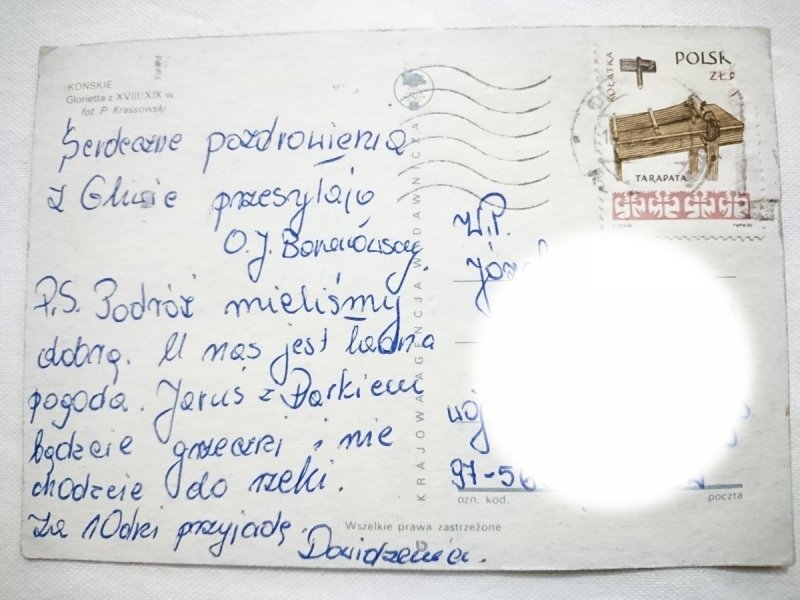 KOŃSKIE
Glorietta z XVIII/XIX w.
fot. P. Krassowski
Serdeczne pozdrowienia
z przesyłają
O. J.
P.S. Podróż mieliśmy
dobrą. U nas jest ładna
pogoda. Jaruś z Darkiem
bądzcie grzeczni i nie
chodzcie do rzeki.
Za 10dni przyjadę.
Dowidzenia.
KRAJOWA AGENCJA WYDAWNICZA
W.P.
woj
97-56
ozn. kod.
poczta
Wszelkie prawa zastrzeżone
POLSK
ZŁ
KOŁATKA
TARAPATA